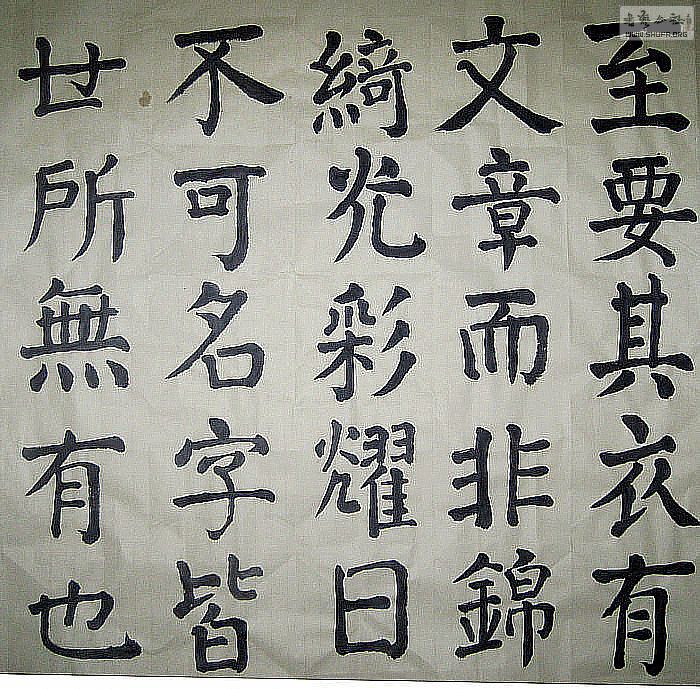 至要其衣有
文章而非錦
綺光彩耀日
不可名字皆
廿所無有也
WWW.SHUFA.ORG